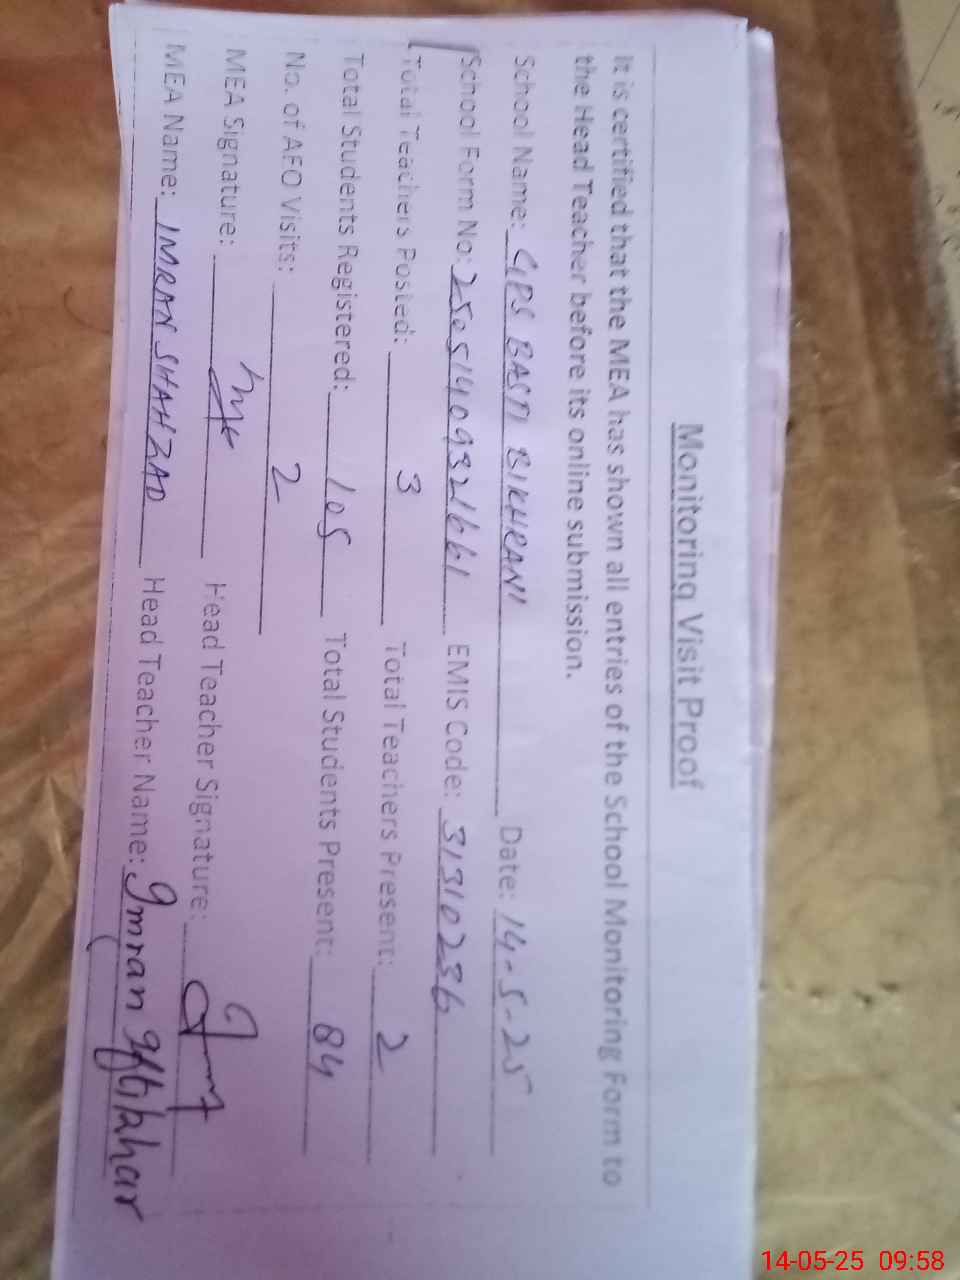 Monitoring Visit Proof
It is certified that the MEA has shown all entries of the School Monitoring Form to
the Head Teacher before its online submission.
School Name: GPS BASTI BIKHRANI Date: 14-5-25
School Form No: 2505140932661 EMIS Code: 31310236
Total Teachers Posted: 3 Total Teachers Present: 2
Total Students Registered: 105 Total Students Present: 84
No. of AEO Visits: 2
MEA Signature: Head Teacher Signature:
MEA Name: IMRAN SHAHZAD Head Teacher Name: Imran Iftikhar
14-05-25 09:58